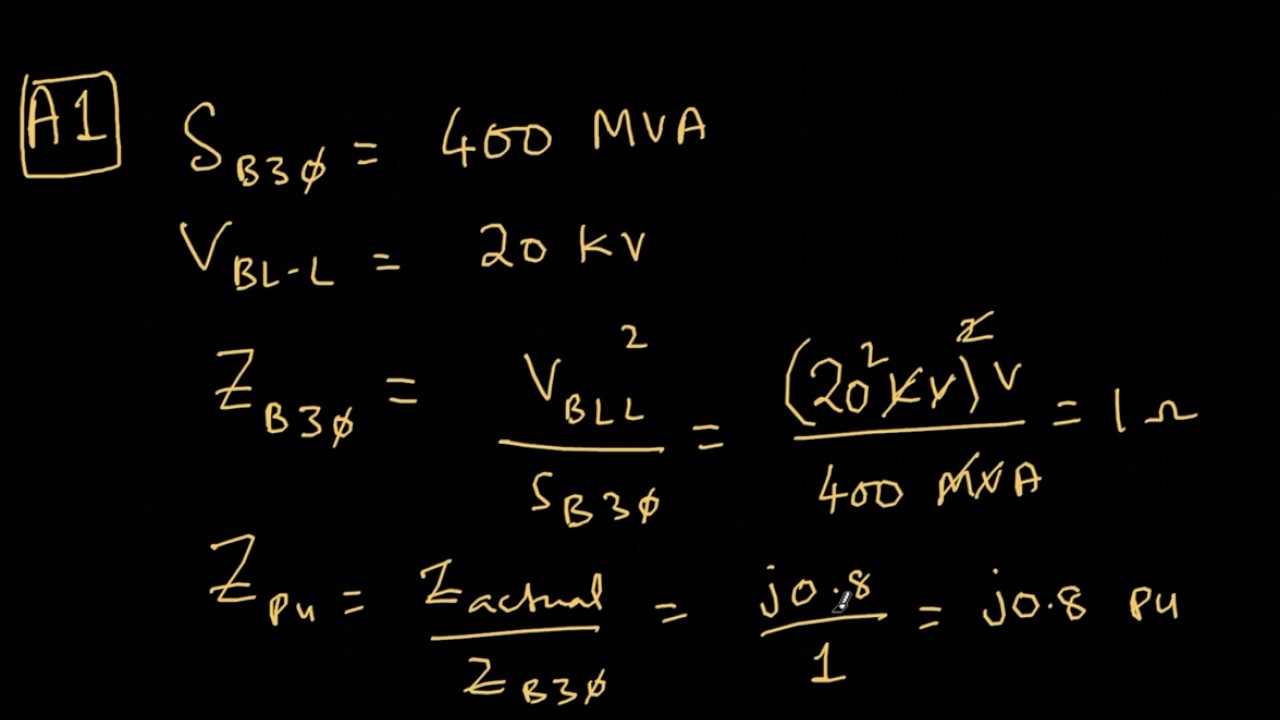 A1
S_B3φ = 400 MVA
V_BL-L = 20 KV
Z_B3φ = V_BLL² / S_B3φ = (20² KV)² V / 400 MVA = 1 Ω
Z_pu = Z_actual / Z_B3φ = j0.8 / 1 = j0.8 pu